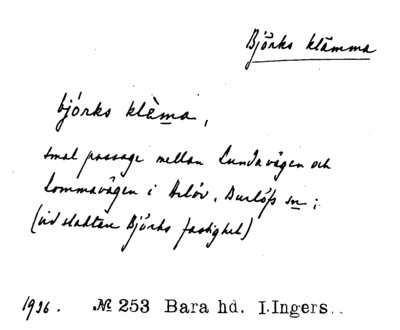 Björks klämma
bjórks klèma,
smal passage mellan Lundavägen och
Lommavägen i Arlöv, Burlöfs sn;
(vid slaktare Björks fastighet)
1936. № 253 Bara hd. I. Ingers.